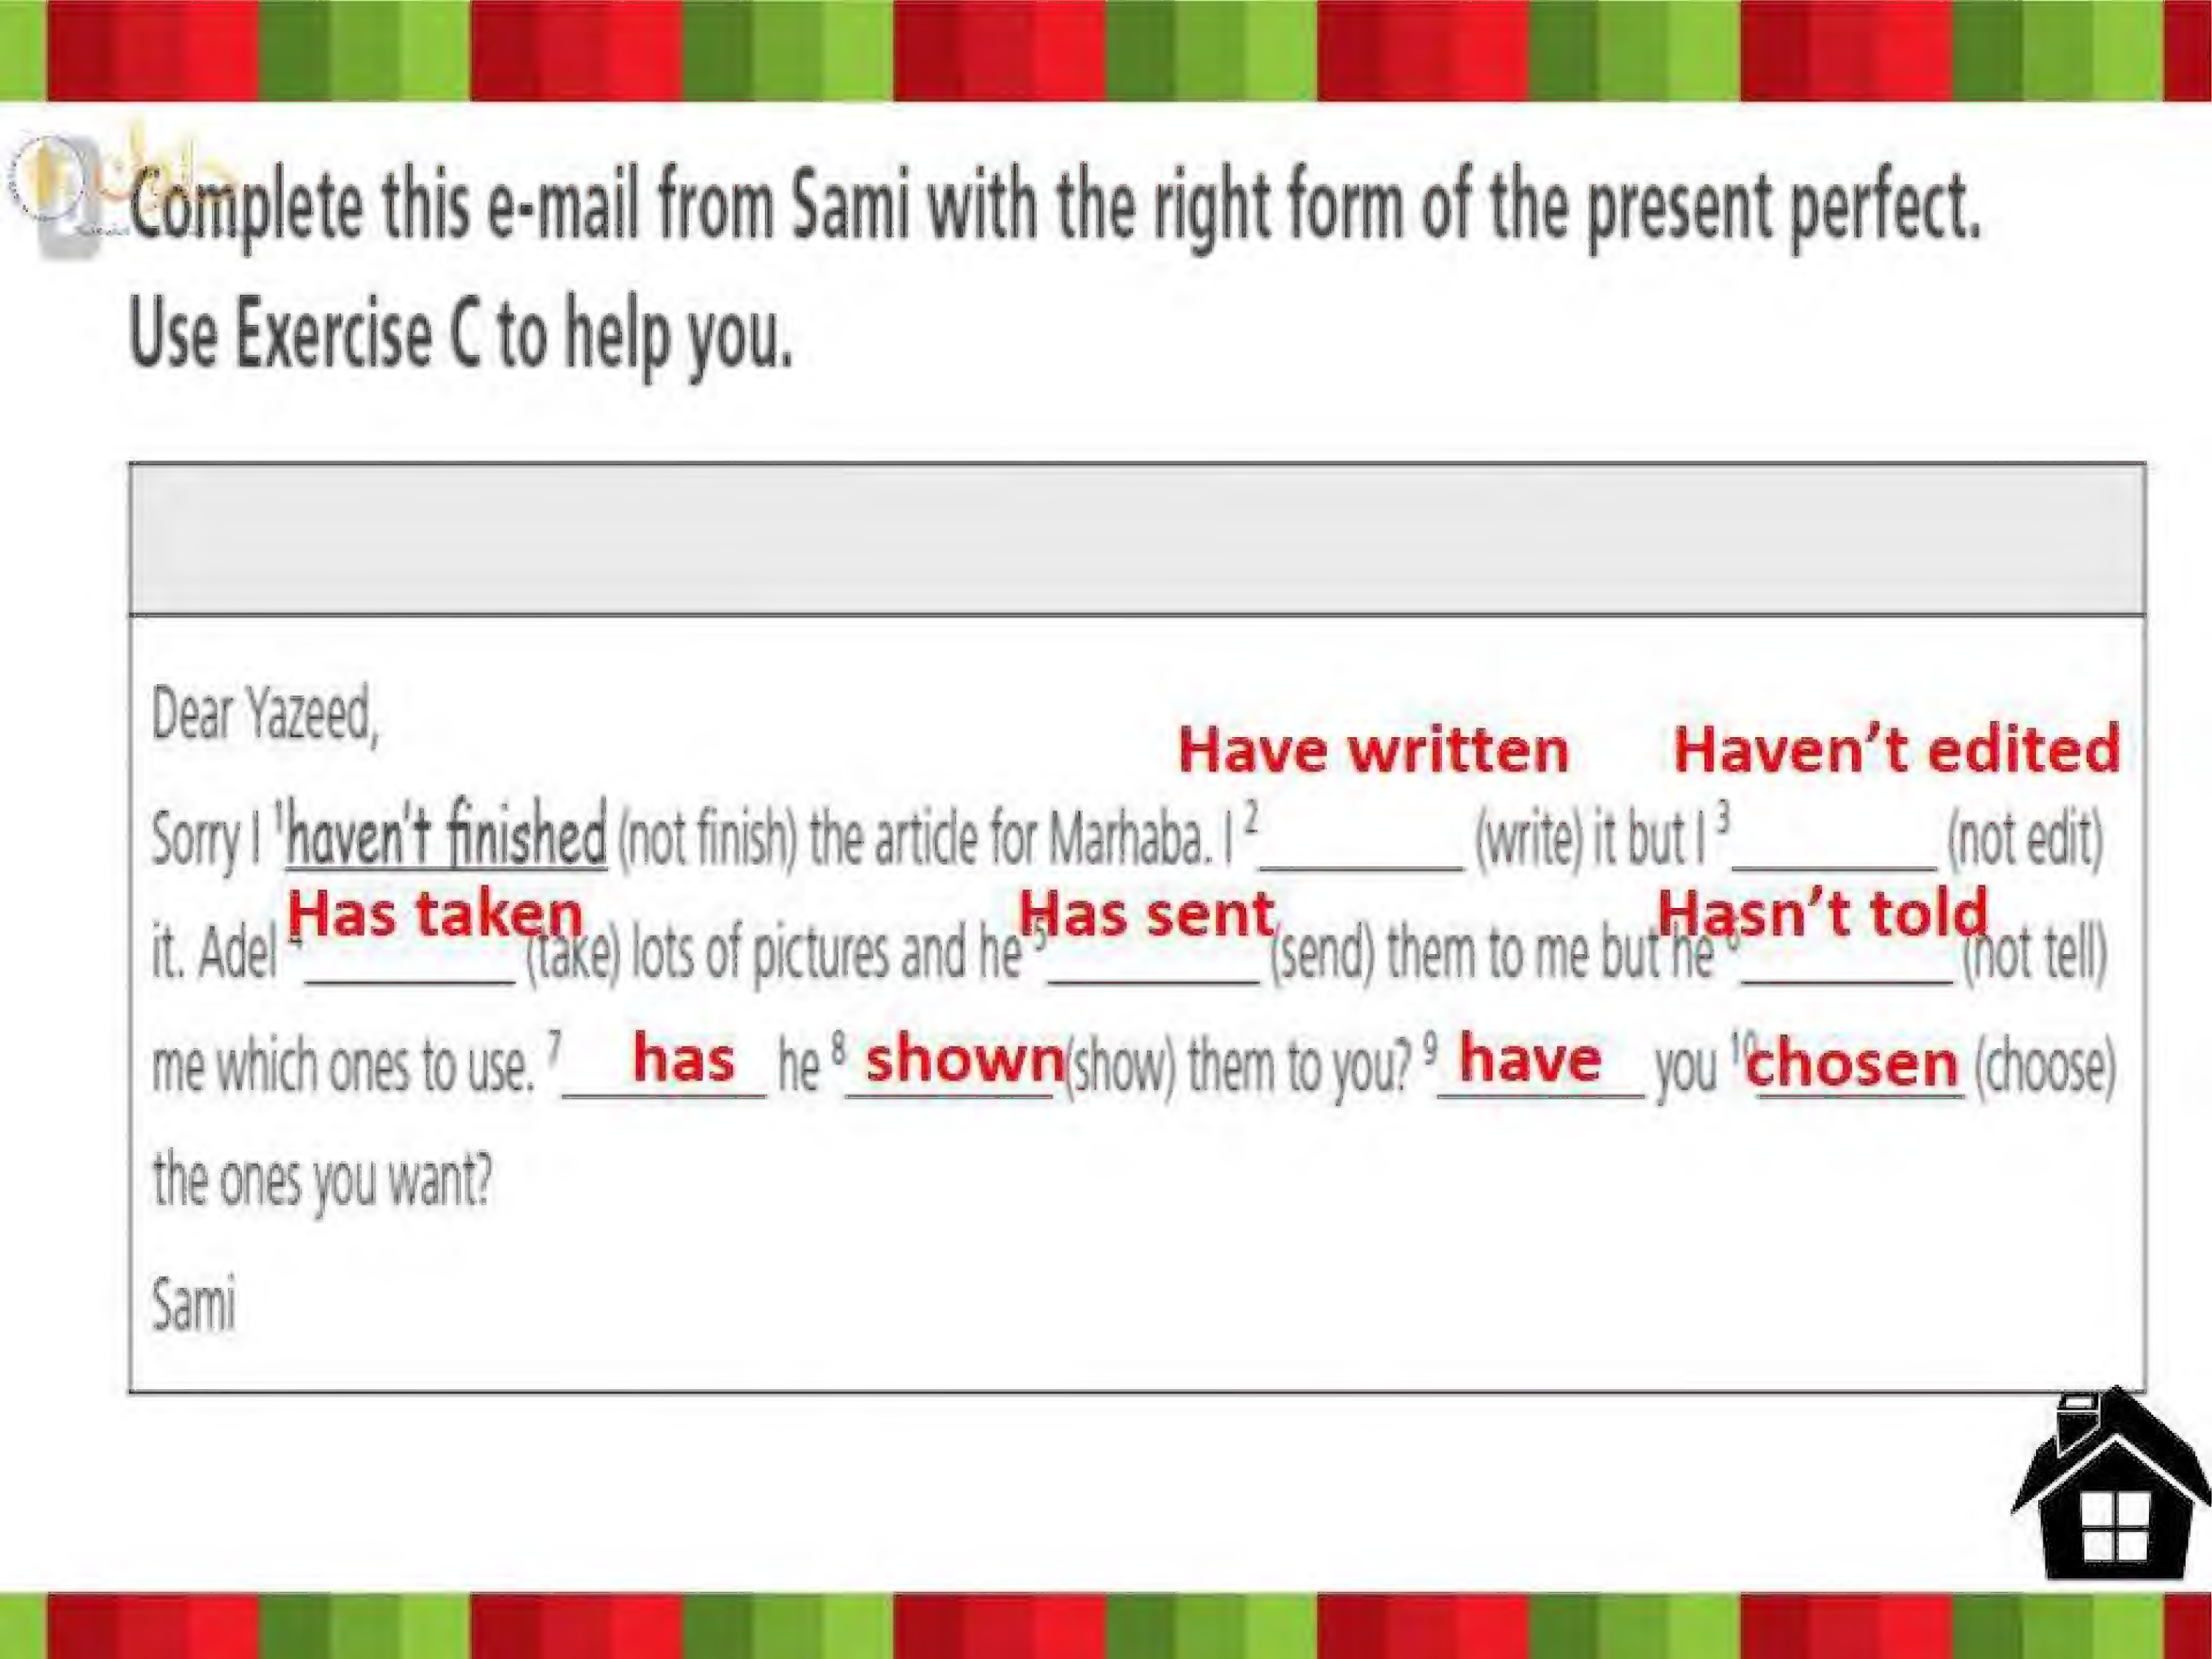 Complete this e-mail from Sami with the right form of the present perfect.
Use Exercise C to help you.
Dear Yazeed,
Have written Haven't edited
Sorry I ¹haven't finished (not finish) the article for Marhaba. I ² __________ (write) it but I ³ __________ (not edit)
Has taken Has sent Hasn't told
it. Adel ⁴ __________ (take) lots of pictures and he ⁵ __________ (send) them to me but he ⁶ __________ (not tell)
me which ones to use. ⁷ has he ⁸ shown (show) them to you? ⁹ have you ¹⁰ chosen (choose)
the ones you want?
Sami